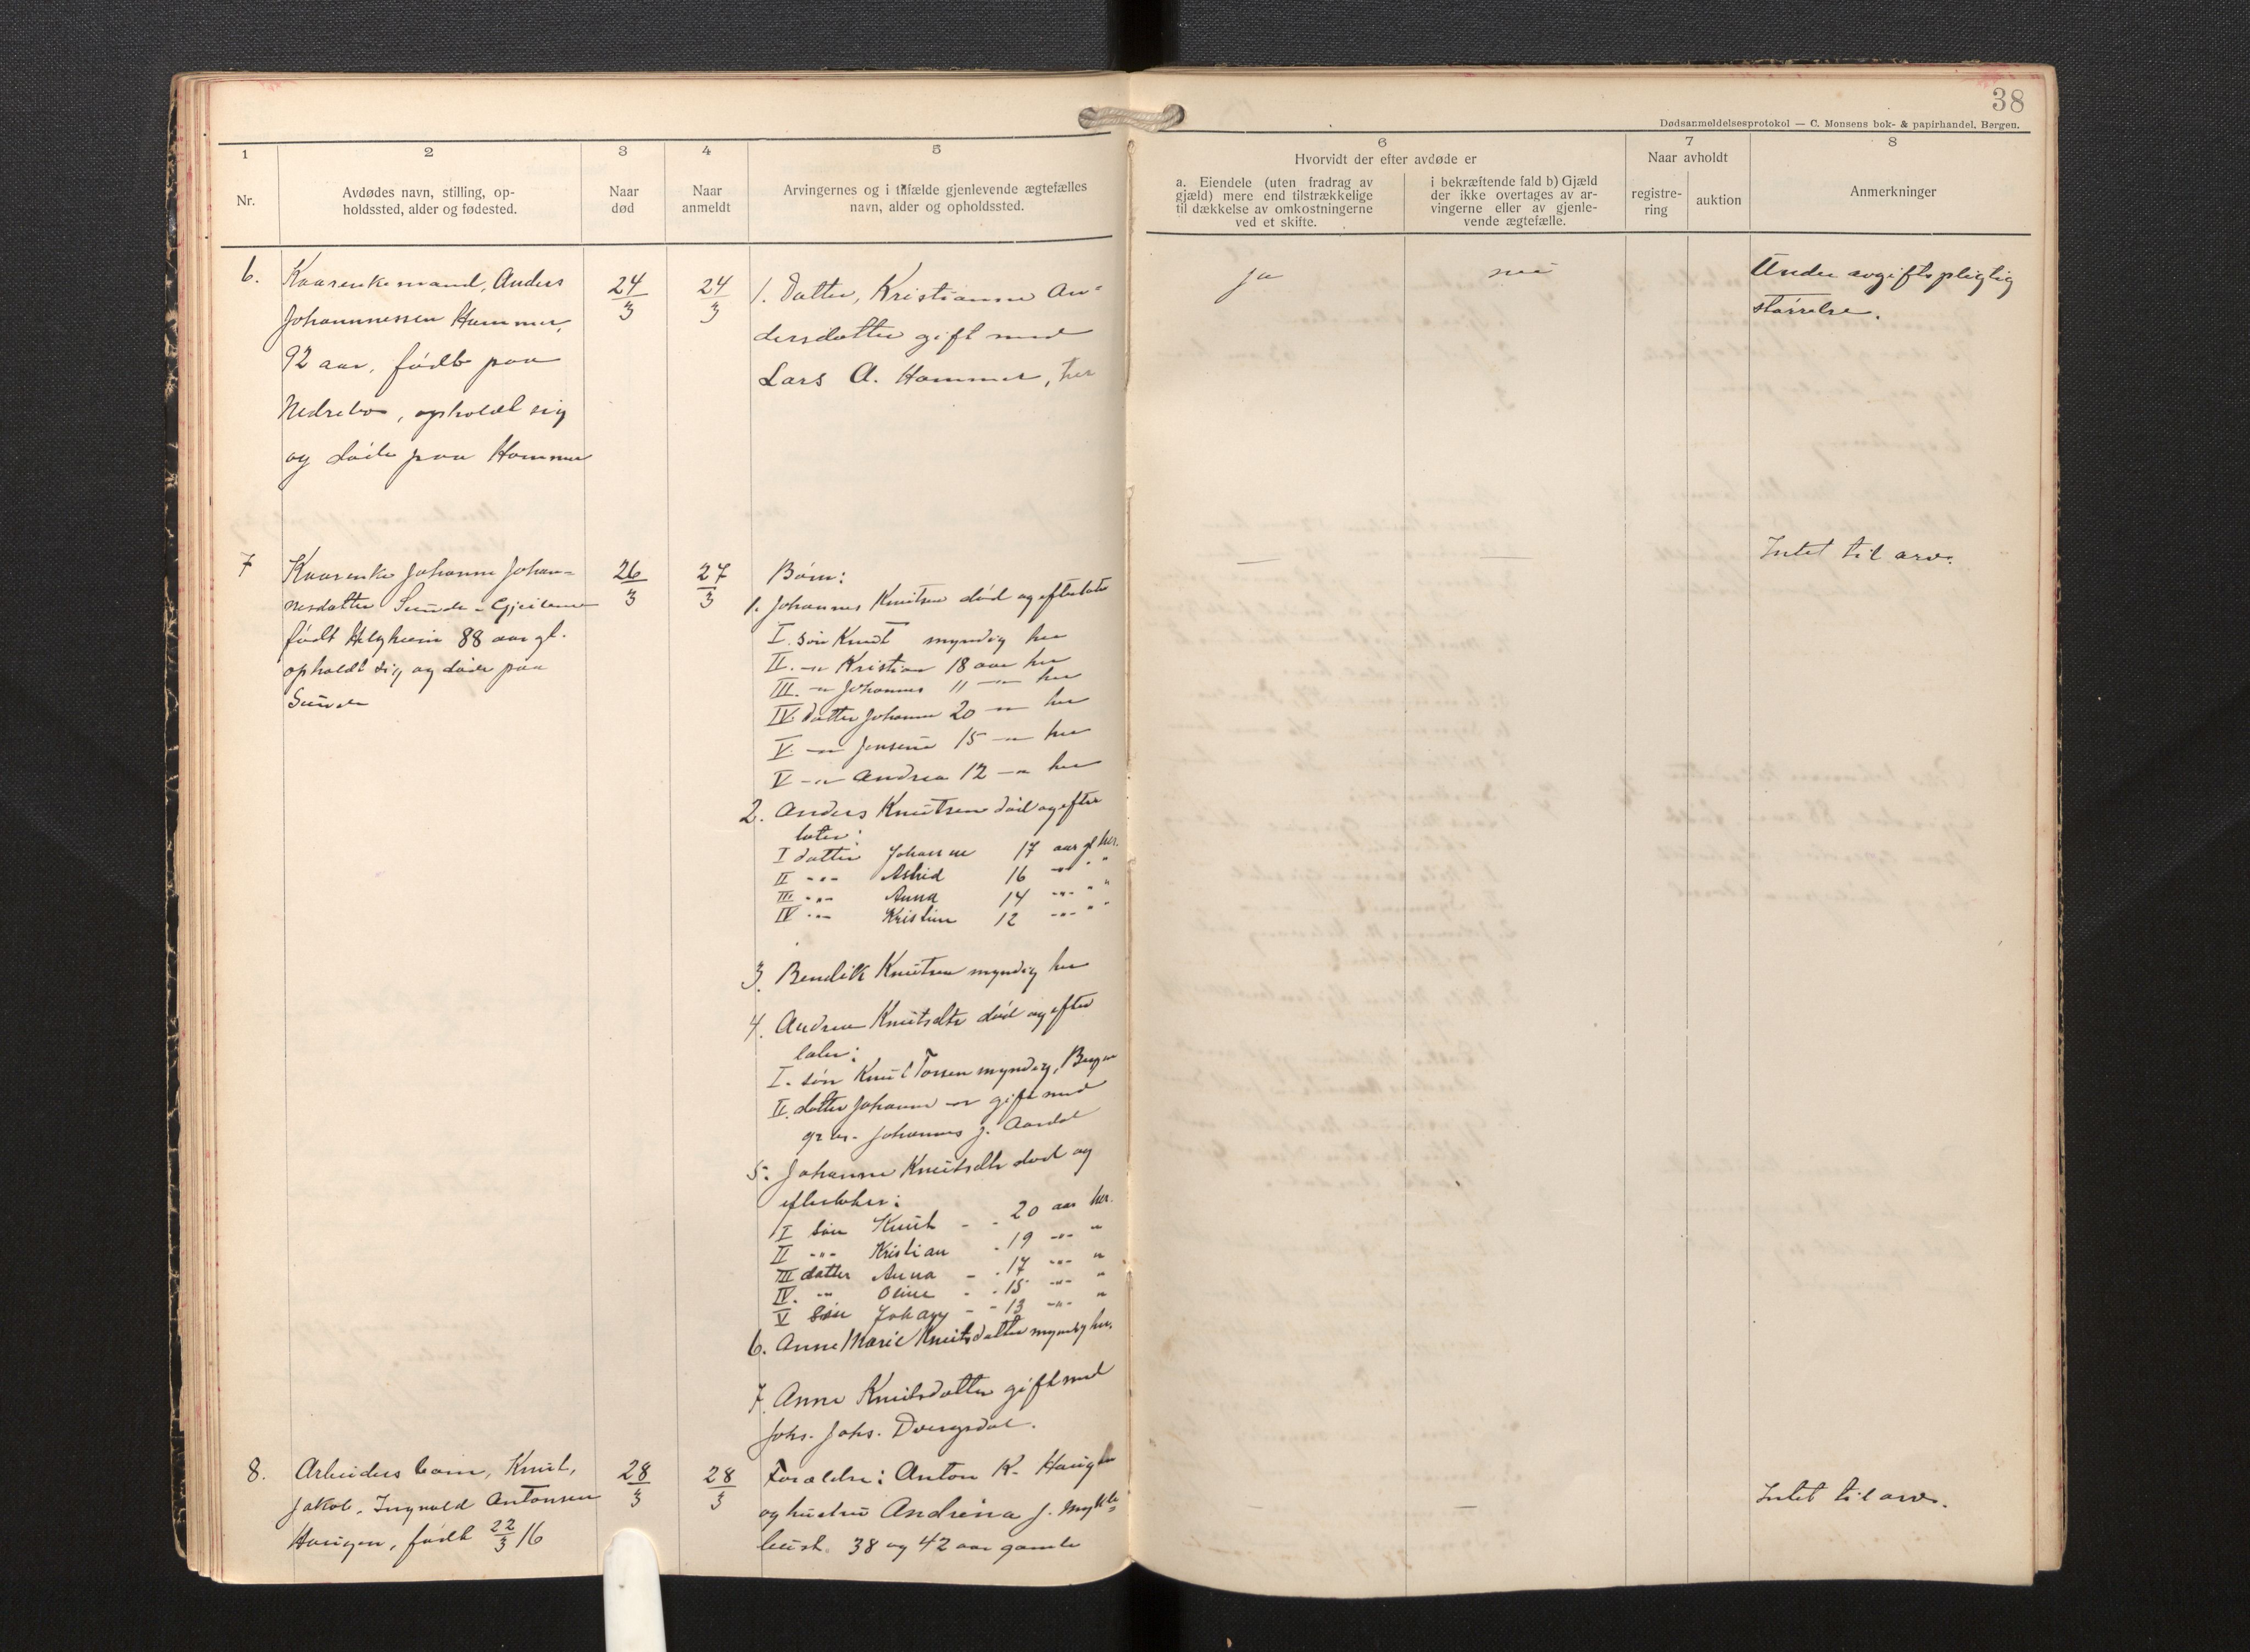 38
Dødsanmeldelsesprotokol — C. Monsens bok- & papirhandel, Bergen.
1 2 3 4 5 6 7 8
Nr.
Avdødes navn, stilling, op-
holdssted, alder og fødested.
Naar
død
Naar
anmeldt
Arvingernes og i tilfælde gjenlevende ægtefælles
navn, alder og opholdssted.
Hvorvidt der efter avdøde er
a. Eiendele (uten fradrag av
gjæld) mere end tilstrækkelige
til dækkelse av omkostningerne
ved et skifte.
i bekræftende fald b) Gjæld
der ikke overtages av ar-
vingerne eller av gjenle-
vende ægtefælle.
Naar avholdt
registre-
ring
auktion
Anmerkninger
6.
Kaarenkemand, Anders
Johannnessen Hammer,
92 aar, født paa
Nedrebø, opholdt sig
og døde paa Hammer
24/3
24/3
1. Datter, Kristianne An=
dersdatter gift med
Lars A. Hammer, her
ja
nei
Under avgiftspligtig
størrelse.
7
Kaarenke Johanne Johan=
nesdatter Sunde - Gjeitene
født Helgheim 88 aar gl.
opholdt sig og døde paa
Sunde
26/3
27/3
Børn:
1. Johannes Knutsen død og efterlater
I. søn Knut myndig her
II. -"- Kristian 18 aar her
III. -"- Johannes 11 -"- her
IV. datter Johanne 20 -"- her
V. -"- Jensine 15 -"- her
V -"- Andrea 12 -"- her
2. Anders Knutsen død og efter
later:
I datter Johanne 17 aar gl her.
II -"- Astrid 16 -"- "
III -"- Anna 14 -"- " "
IV -"- Kristine 12 -"- " "
3. Bendik Knutsen myndig her
4. Andrea Knutsdtr død og efter
later:
I. søn Knut Tossen myndig, Bergen
II. datter Johanne -"- gift med
gr. br. Johannes J. Aardal
5. Johanne Knutsdtr død og
efterlater:
I søn Knut - - 20 aar her.
II -"- Kristian - 19 -"- "
III datter Anna - - 17 -"- "
IV. -"- Oline - - 15 -"- "
V søn Johan - - 13 -"- "
6. Anne Marie Knutsdatter myndig her.
7. Anne Knutsdatter gift med
Johs. Johs. Dvergsdal.
—
—
Intet til arv.
8.
Arbeiders barn, Knut,
Jakob, Ingvald Antonsen
Haugen, født 22/3 16
28/3
28/3
Forældre: Anton K. Haugen
og hustru Andrina J. Mykle=
bust. 38 og 42 aar gamle
—
—
Intet til arv.